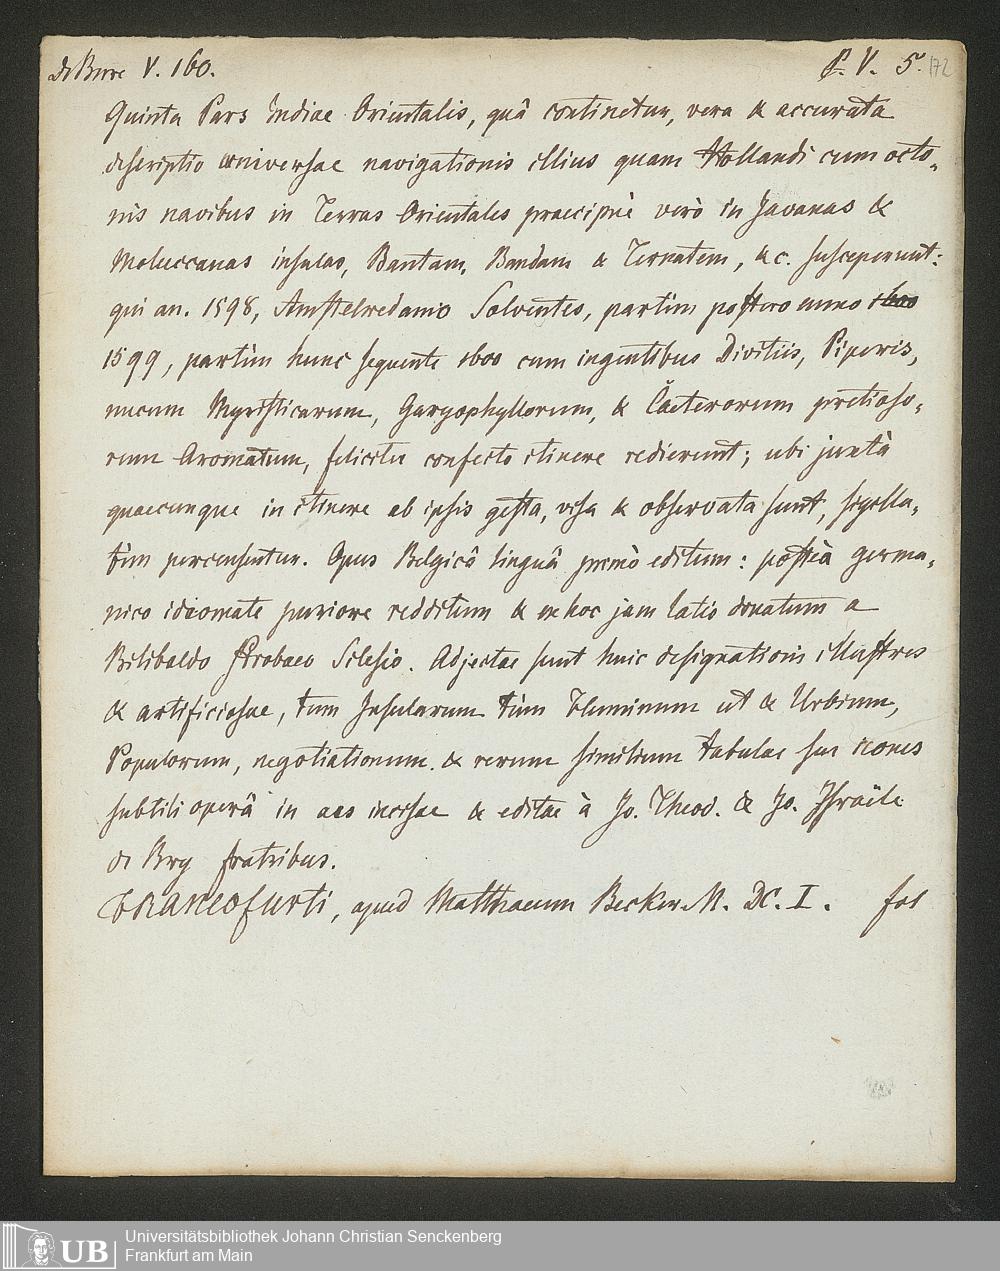 De Bure V. 160. P. V. 5. 172
Quinta Pars Indiae Orientalis, quâ continetur, vera & accurata
descriptio universae navigationis illius quam Hollandi cum octo-
nis navibus in Terras Orientales praecipuè verò in Javanas &
Moluccanas insulas, Bantam, Bandam & Ternatem, &c. susceperunt:
qui an. 1598, Amstelredamo Solventes, partim postero anno 1600
1599, partim hunc sequente 1600 cum ingentibus Divitiis, Piperis,
nucum Myristicarum, Garyophyllorum, & Caeterorum pretioso-
rum Aromatum, feliciter confecto itinere redierunt; ubi juxtà
quaecunque in itinere ab ipsis gesta, visa & observata sunt, sigilla-
tim percensentur. Opus Belgicâ linguâ primò editum: posteà germa-
nico idiomate puriore redditum & ex hoc jam latio donatum a
Bilibaldo Strobaeo Silesio. Adjectae sunt huic designationis illustres
& artificiosae, tum Insularum tùm Fluminum ut & Urbium,
Populorum, negotiationum & rerum similium tabulae seu icones
subtili operâ in aes incisae & editae à Jo. Theod. & Jo. Israële
de Bry fratribus.
FRANCofurti, apud Matthaeum Becker M. DC. I. fol
UB Universitätsbibliothek Johann Christian Senckenberg
Frankfurt am Main